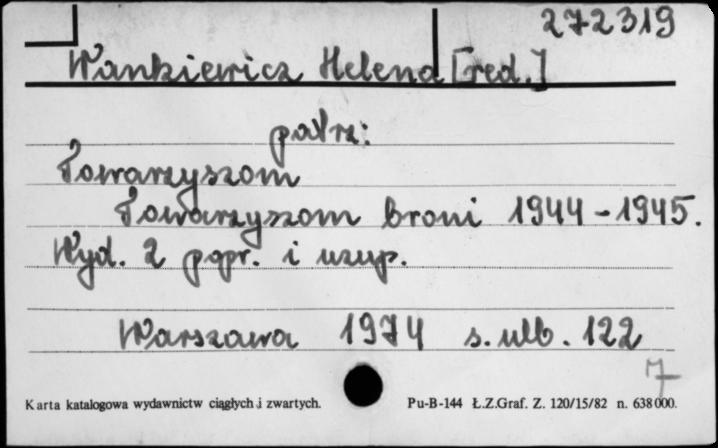 272319
Wankiewicz Helena [red.]
patrz:
Towarzyszom
Towarzyszom broni 1944-1945.
Wyd. 2 popr. i uzup.
Warszawa 1974 s. ulb. 122
7
Karta katalogowa wydawnictw ciągłych i zwartych. Pu-B-144 Ł.Z.Graf. Z. 120/15/82 n. 638000.